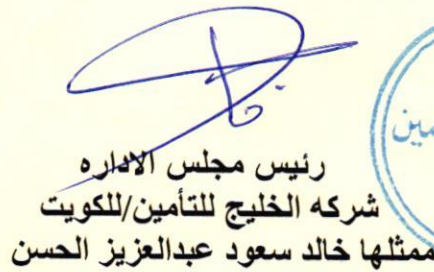 رئيس مجلس الاداره
شركه الخليج للتأمين/للكويت
ممثلها خالد سعود عبدالعزيز الحسن